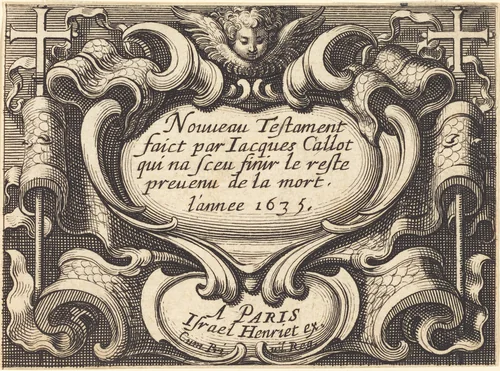 Nouueau Testament
faict par Iacques Callot
qui na sceu finir le reste
preuenu de la mort.
l'annee 1635.
A PARIS
Israel Henriet ex.
Cum Pri uil Reg